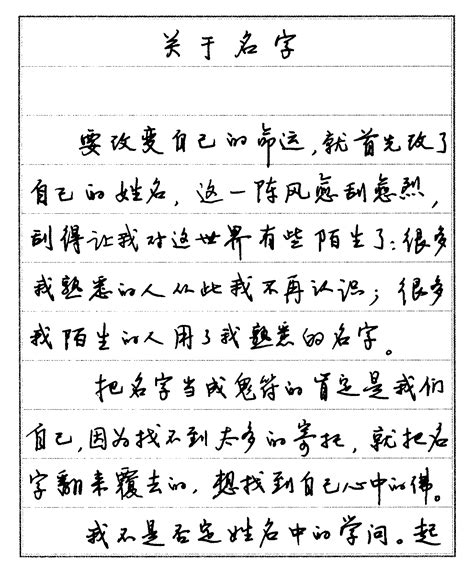 关于名字
要改变自己的命运,就首先改了
自己的姓名，这一阵风愈刮愈烈，
刮得让我对这世界有些陌生了:很多
我熟悉的人从此我不再认识；很多
我陌生的人用了我熟悉的名字。
把名字当成鬼符的肯定是我们
自己,因为找不到太多的寄托，就把名
字翻来覆去的，想找到自己心中的佛。
我不是否定姓名中的学问。起